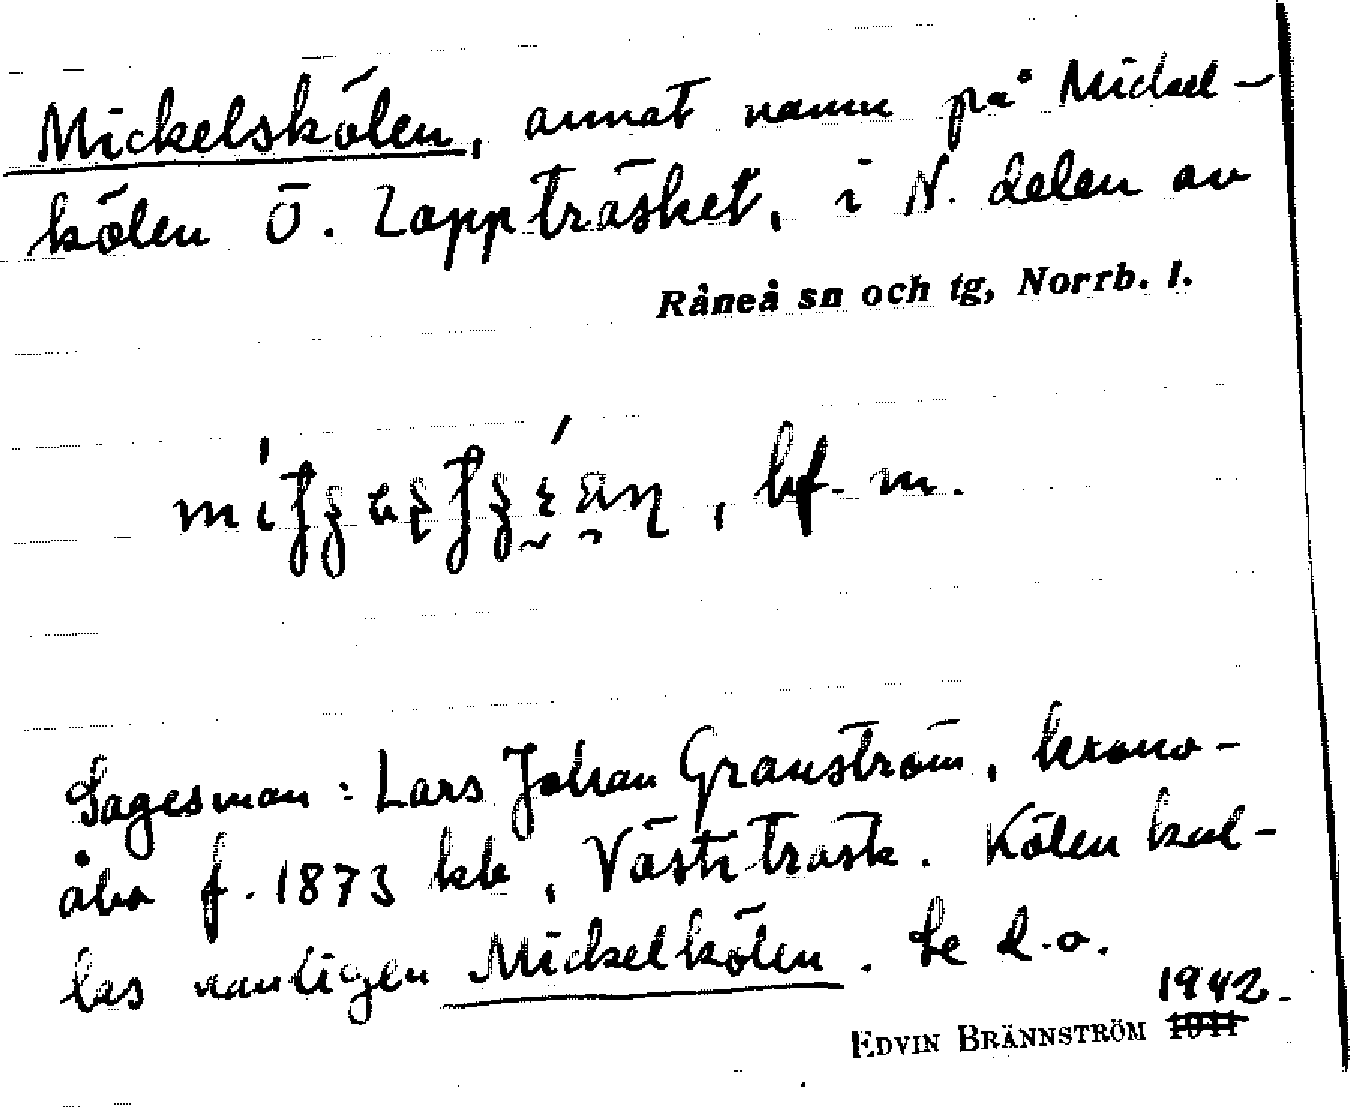 Mickelskölen, annat namn på Mickel-
kölen Ö. Lappträsket, i N. delen av
Råneå sn och tg, Norrb. l.
, bf. m.
Sagesman: Lars Johan Granström, krono-
åbo f. 1873 kb, Västi träsk. Kölen kal-
las vanligen Mickelkölen. Se d.o.
1942
EDVIN BRÄNNSTRÖM 1941